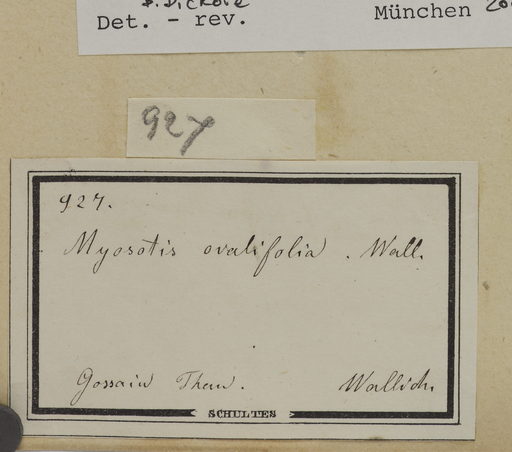 B. Dickoré
Det. - rev.
München 200
927
927.
Myosotis ovalifolia. Wall.
Gossain Than.
Wallich.
SCHULTES